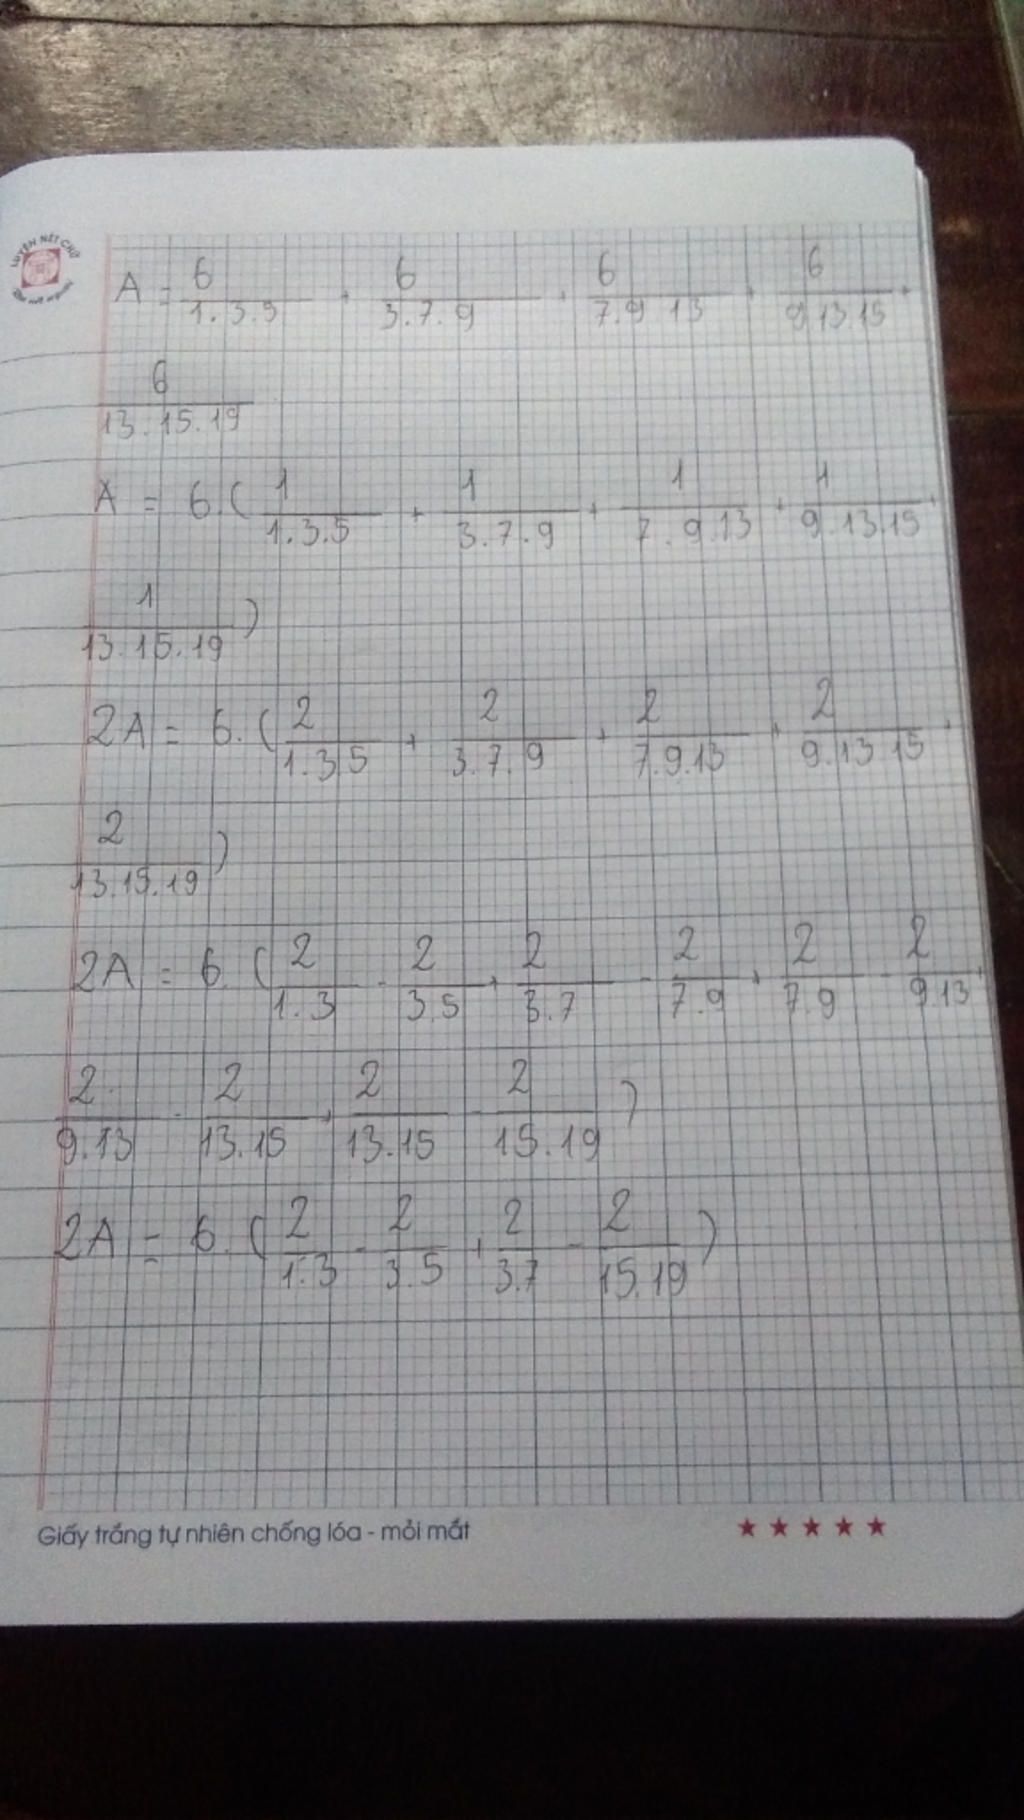 LUYỆN NÉT CHỮ
A = 6/1.3.5 + 6/3.7.9 + 6/7.9.13 + 6/9.13.15 +
6/13.15.19
A = 6.(1/1.3.5 + 1/3.7.9 + 1/7.9.13 + 1/9.13.15 +
1/13.15.19)
2A = 6.(2/1.3.5 + 2/3.7.9 + 2/7.9.13 + 2/9.13.15 +
2/13.15.19)
2A = 6.(2/1.3 - 2/3.5 + 2/3.7 - 2/7.9 + 2/7.9 - 2/9.13 +
2/9.13 - 2/13.15 + 2/13.15 - 2/15.19)
2A = 6.(2/1.3 - 2/3.5 + 2/3.7 - 2/15.19)
Giấy trắng tự nhiên chống lóa - mỏi mắt